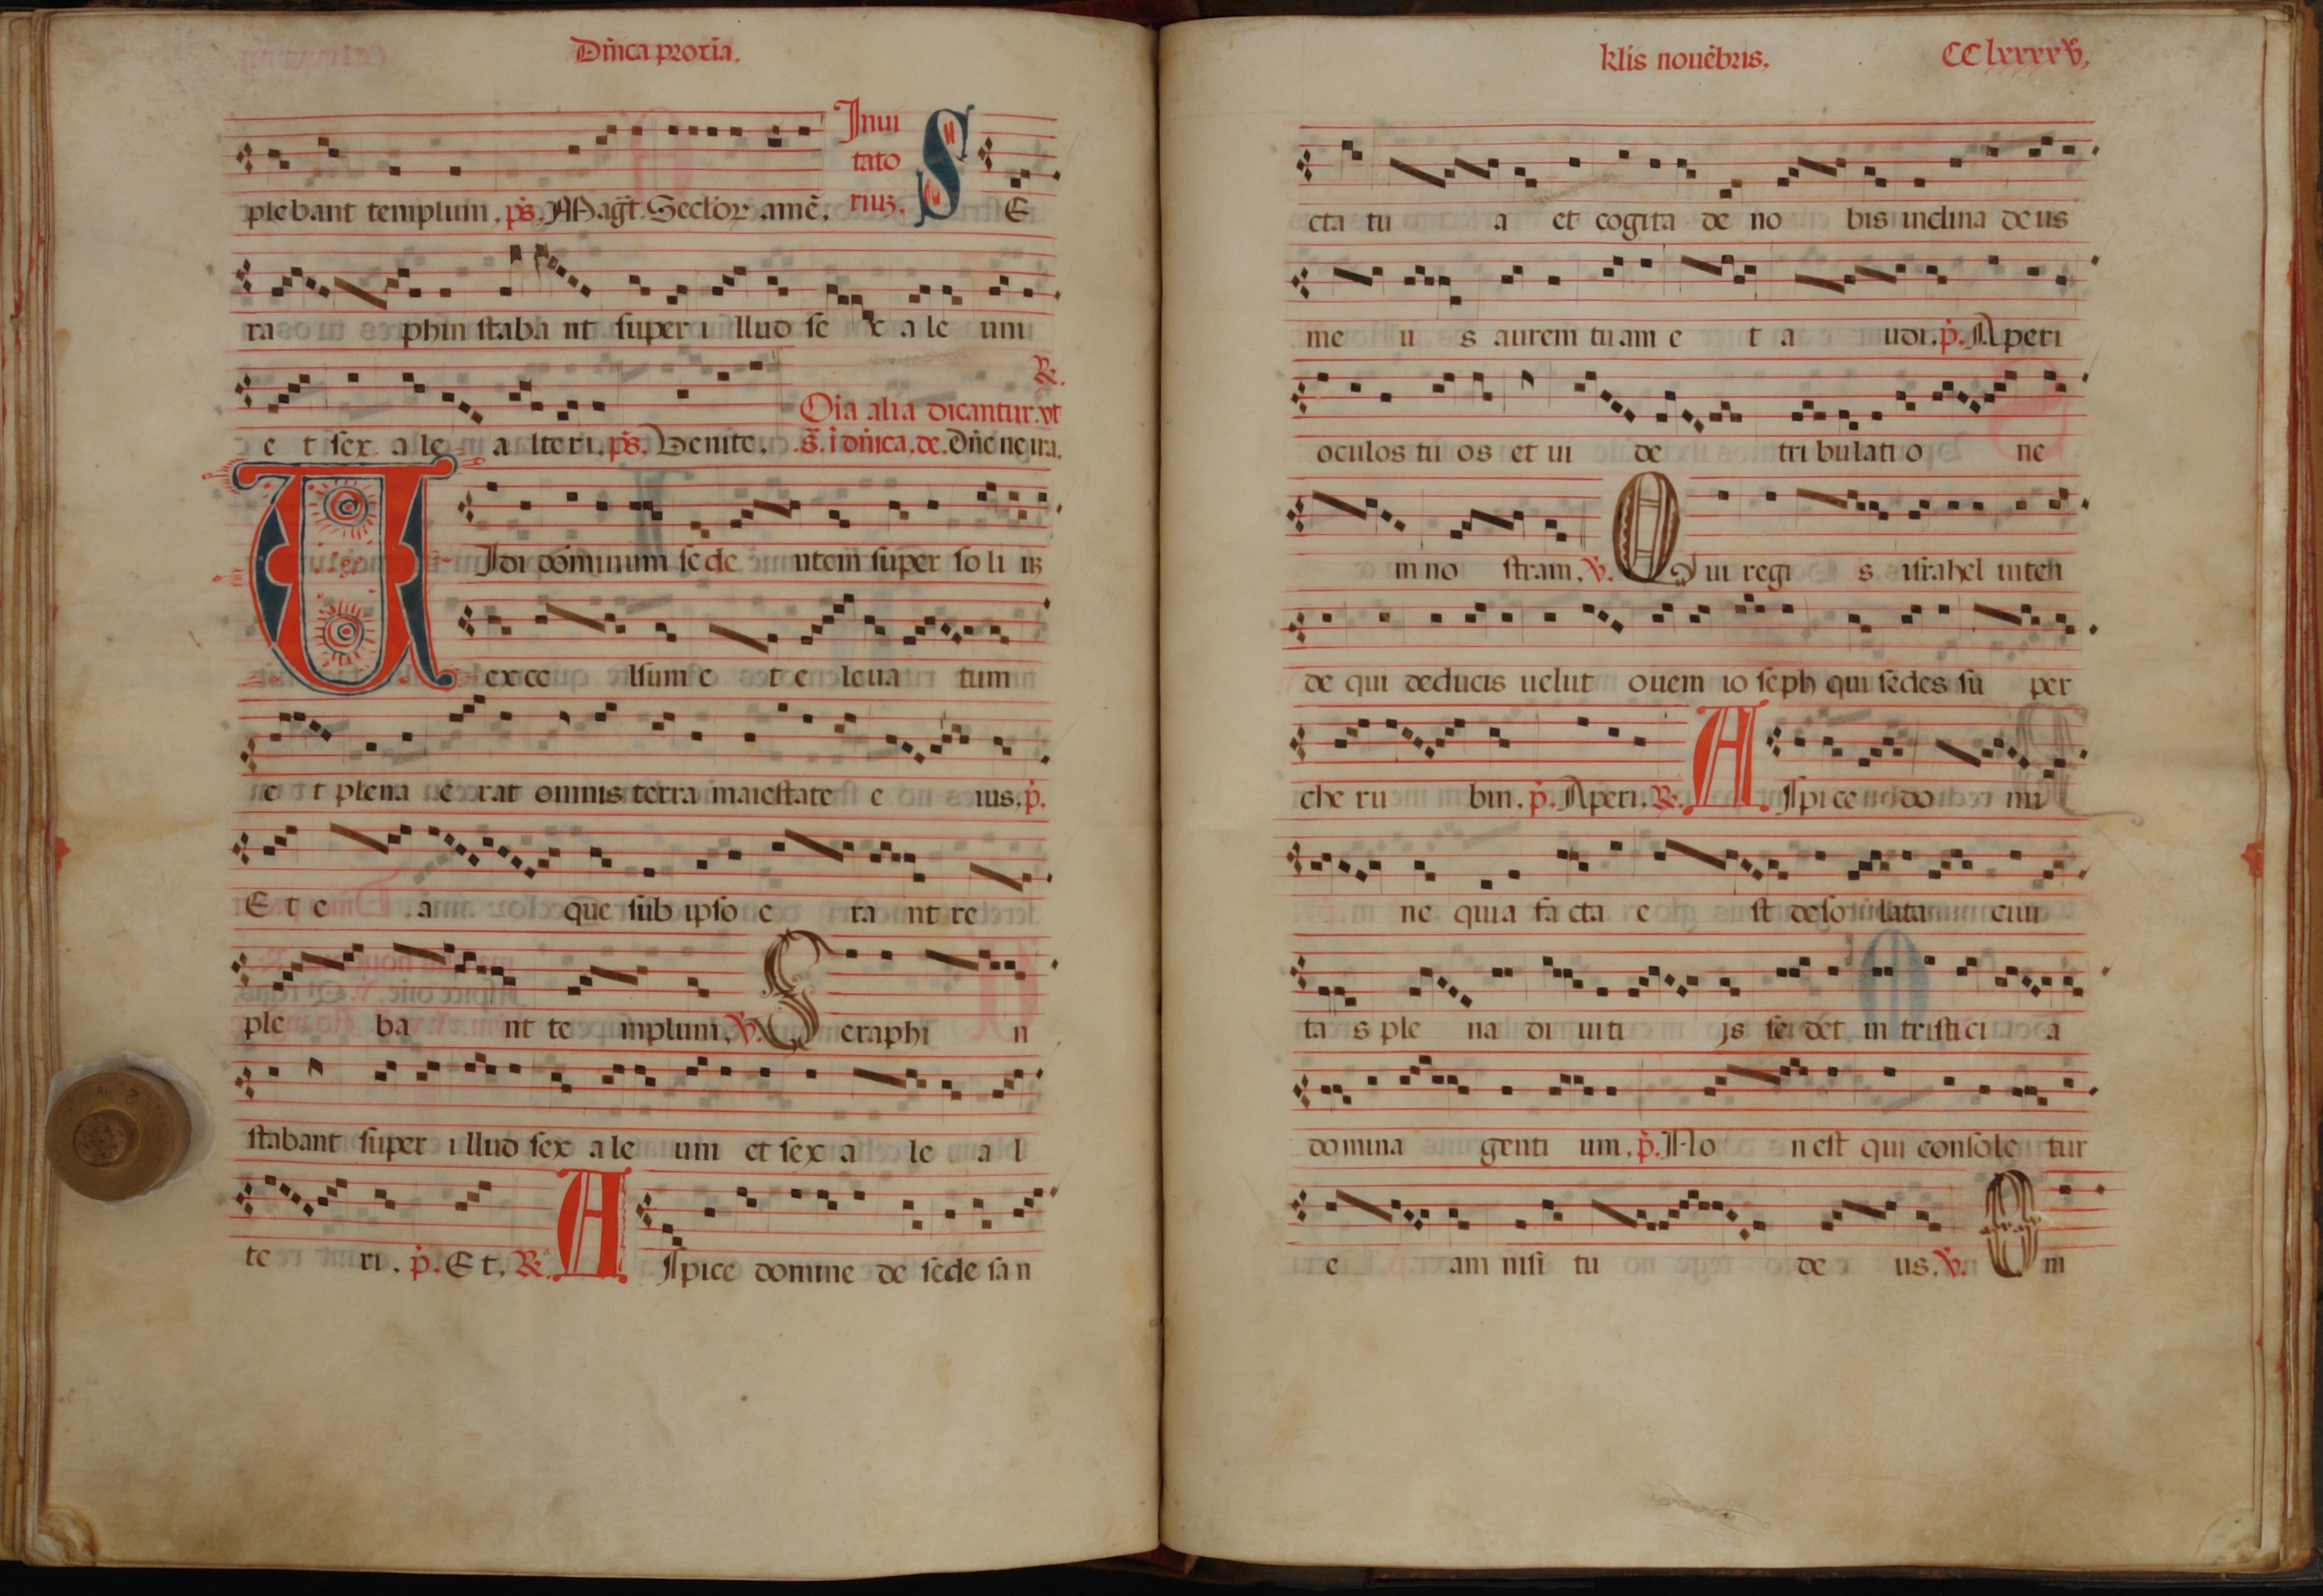 Dñica proxĩa.
plebant templum. p̃s. Mag̃t. Seclor amẽ. Inui
tato
riuȝ. S E
ra phin staba nt super i llud se x a le uni
R̃.
Oĩa alia dicantur. vt
e t sex a le a lteri. p̃s. Venite. s̃. ĩ dñica. de. Dñe ne ira.
U Idi dominum sede ntem super so li uȝ
exce lsum e t e leua tum
e t plena e rat omnis terra maiestate e ius. p̃.
E t e a que sub ipso e ra nt re
ple ba nt te mplum. Ṽ. S eraphi n
stabant super illud sex ale uni et sex a le a l
te ri. p̃. E t. R̃. A spice domine de sede san
kłis nouẽbris. CC lxxxxv.
cta tu a et cogita de no bis inclina deus
me u s aurem tuam e t a udi. p̃. Aperi
oculos tuos et ui de tribulatio ne
m no stram. Ṽ. Q ui regi s israhel inten
de qui deducis uelut ouem io seph qui sedes su per
che ru bin. p̃. Aperi. R̃. A spice do mi
ne quia facta e st desolata ciui
ta s ple na di uiti js sedet in tristici a
domina genti um. p̃. No n est qui console tur
e am nisi tu de us. Ṽ. m